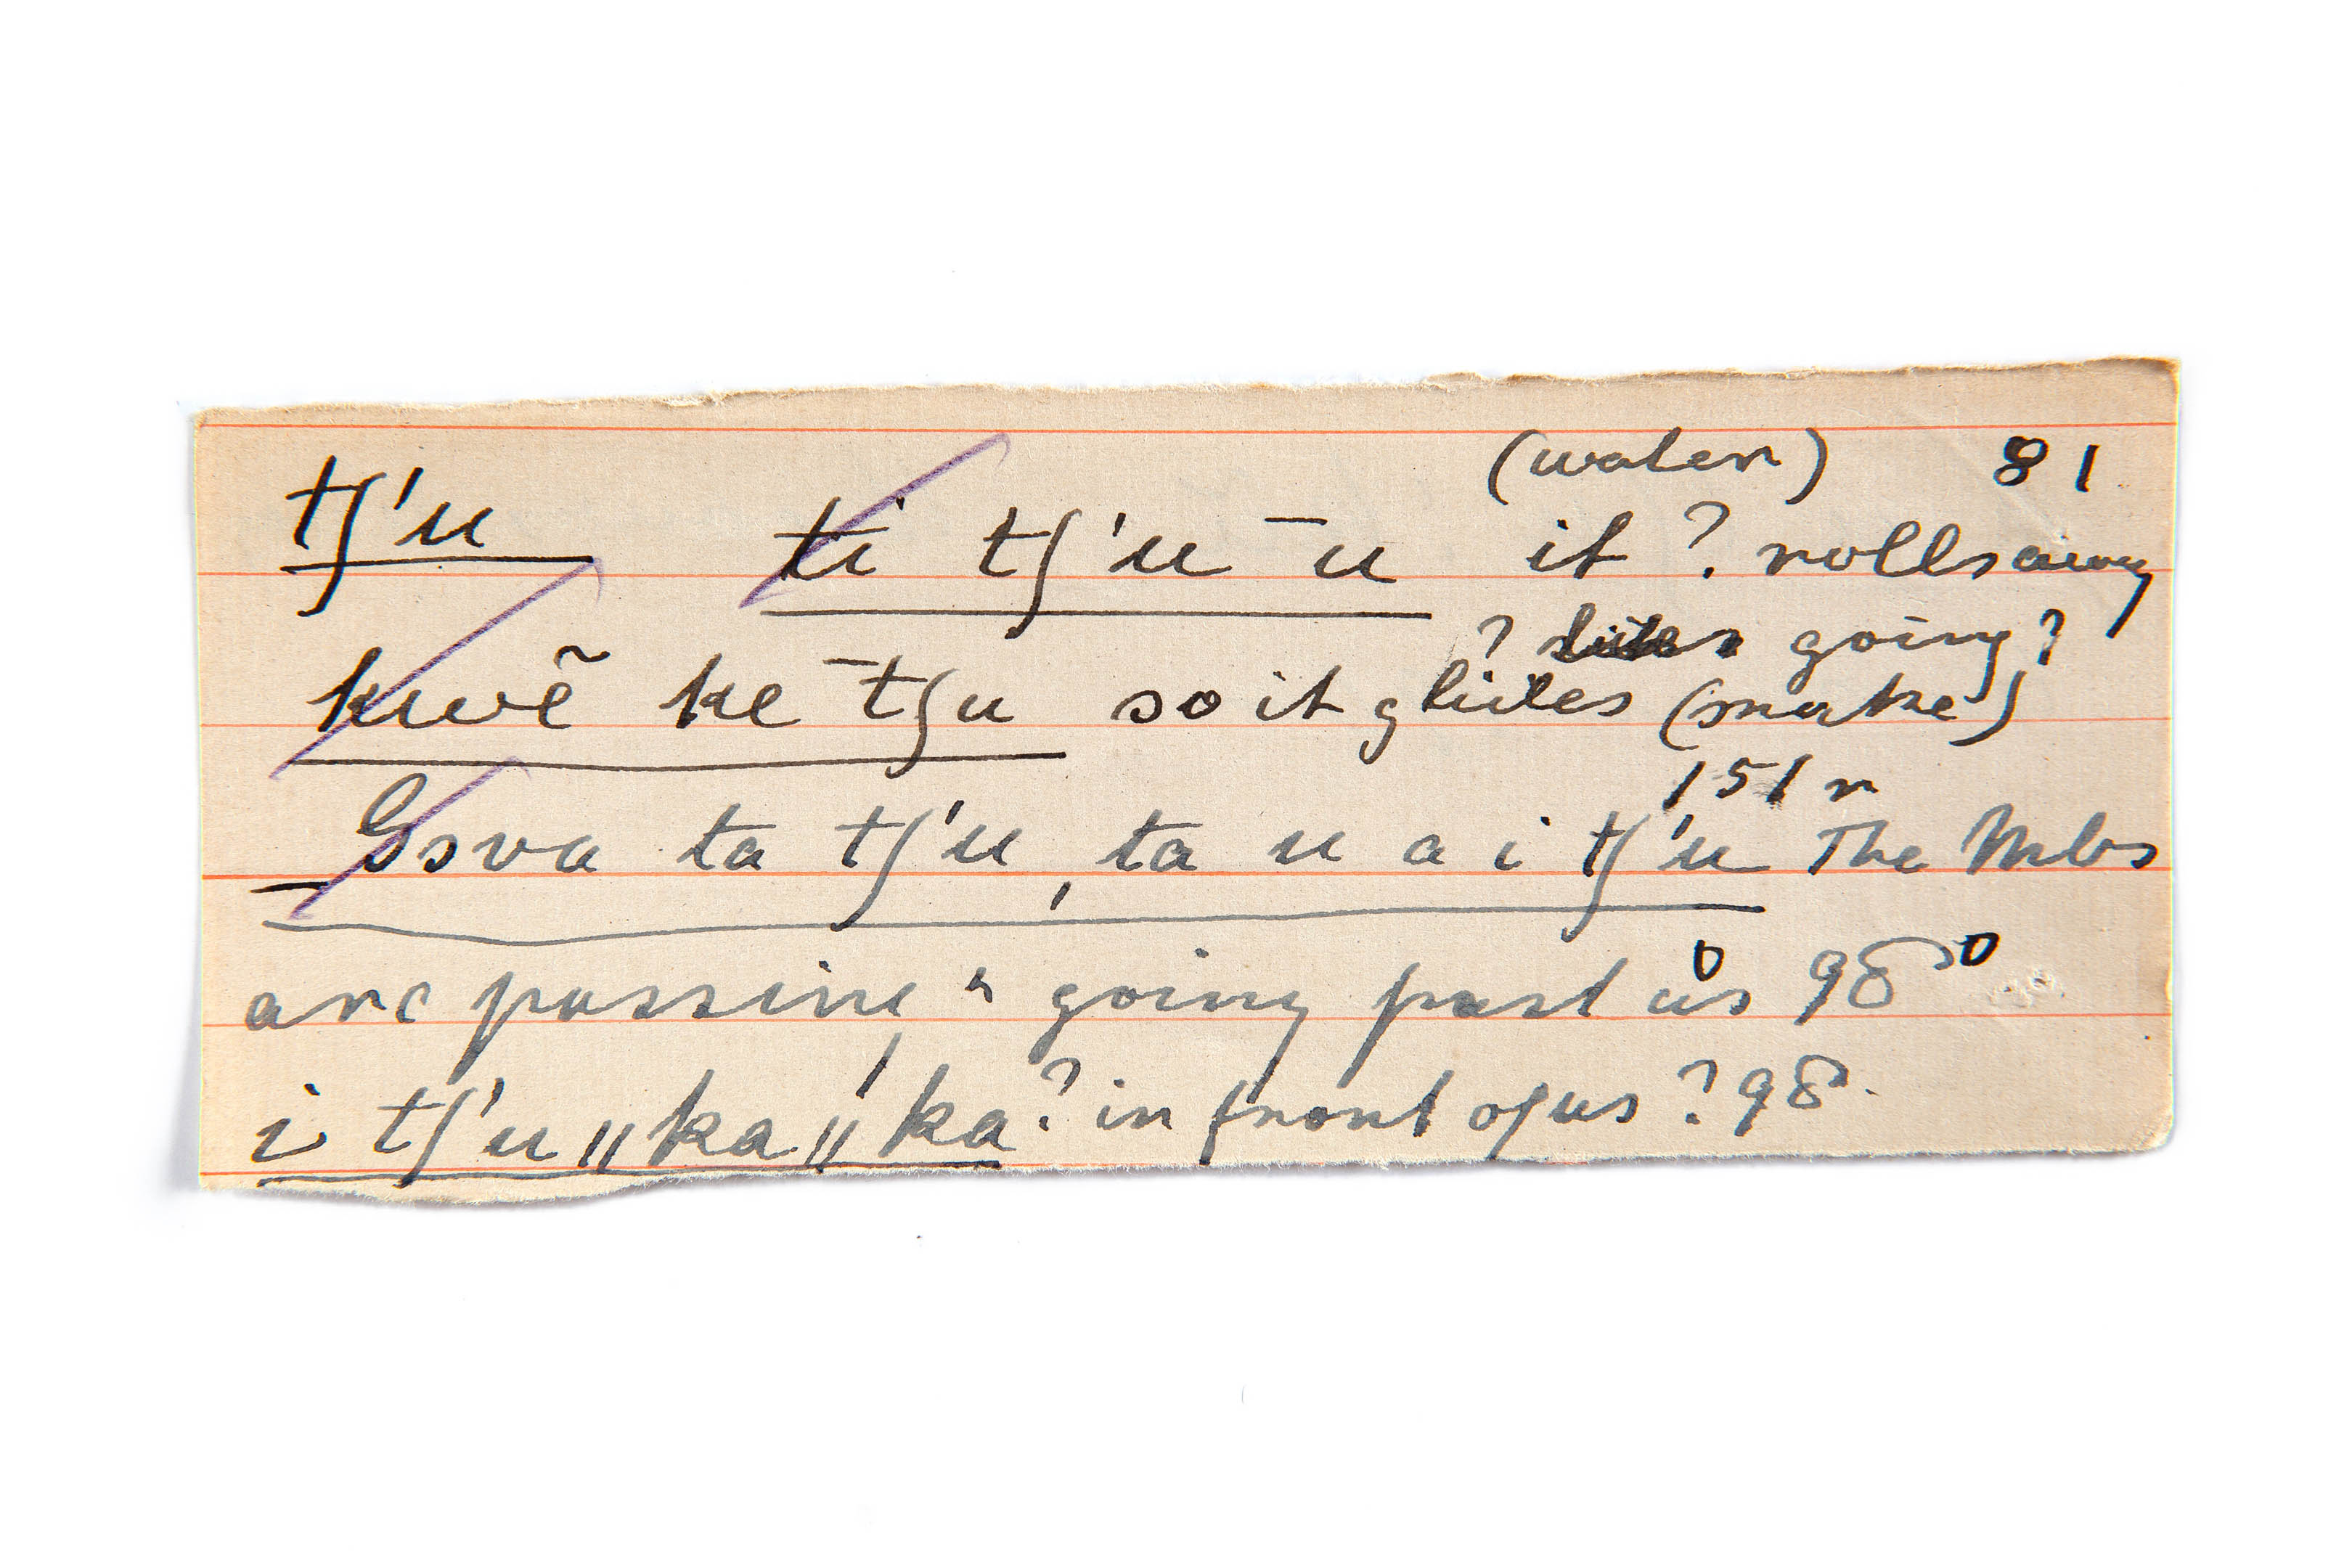 (water) 81
tʃ'u ti tʃ'u – u it ? rolls away
? going?
kwẽ ke – tʃu so it glides (snake)
151 r
Gova ta tʃ'u, ta u a i tʃ'u The Mbs
are passing & going past us 98
i tʃ'u ǁ ka ǁ ka ? in front of us ? 98.